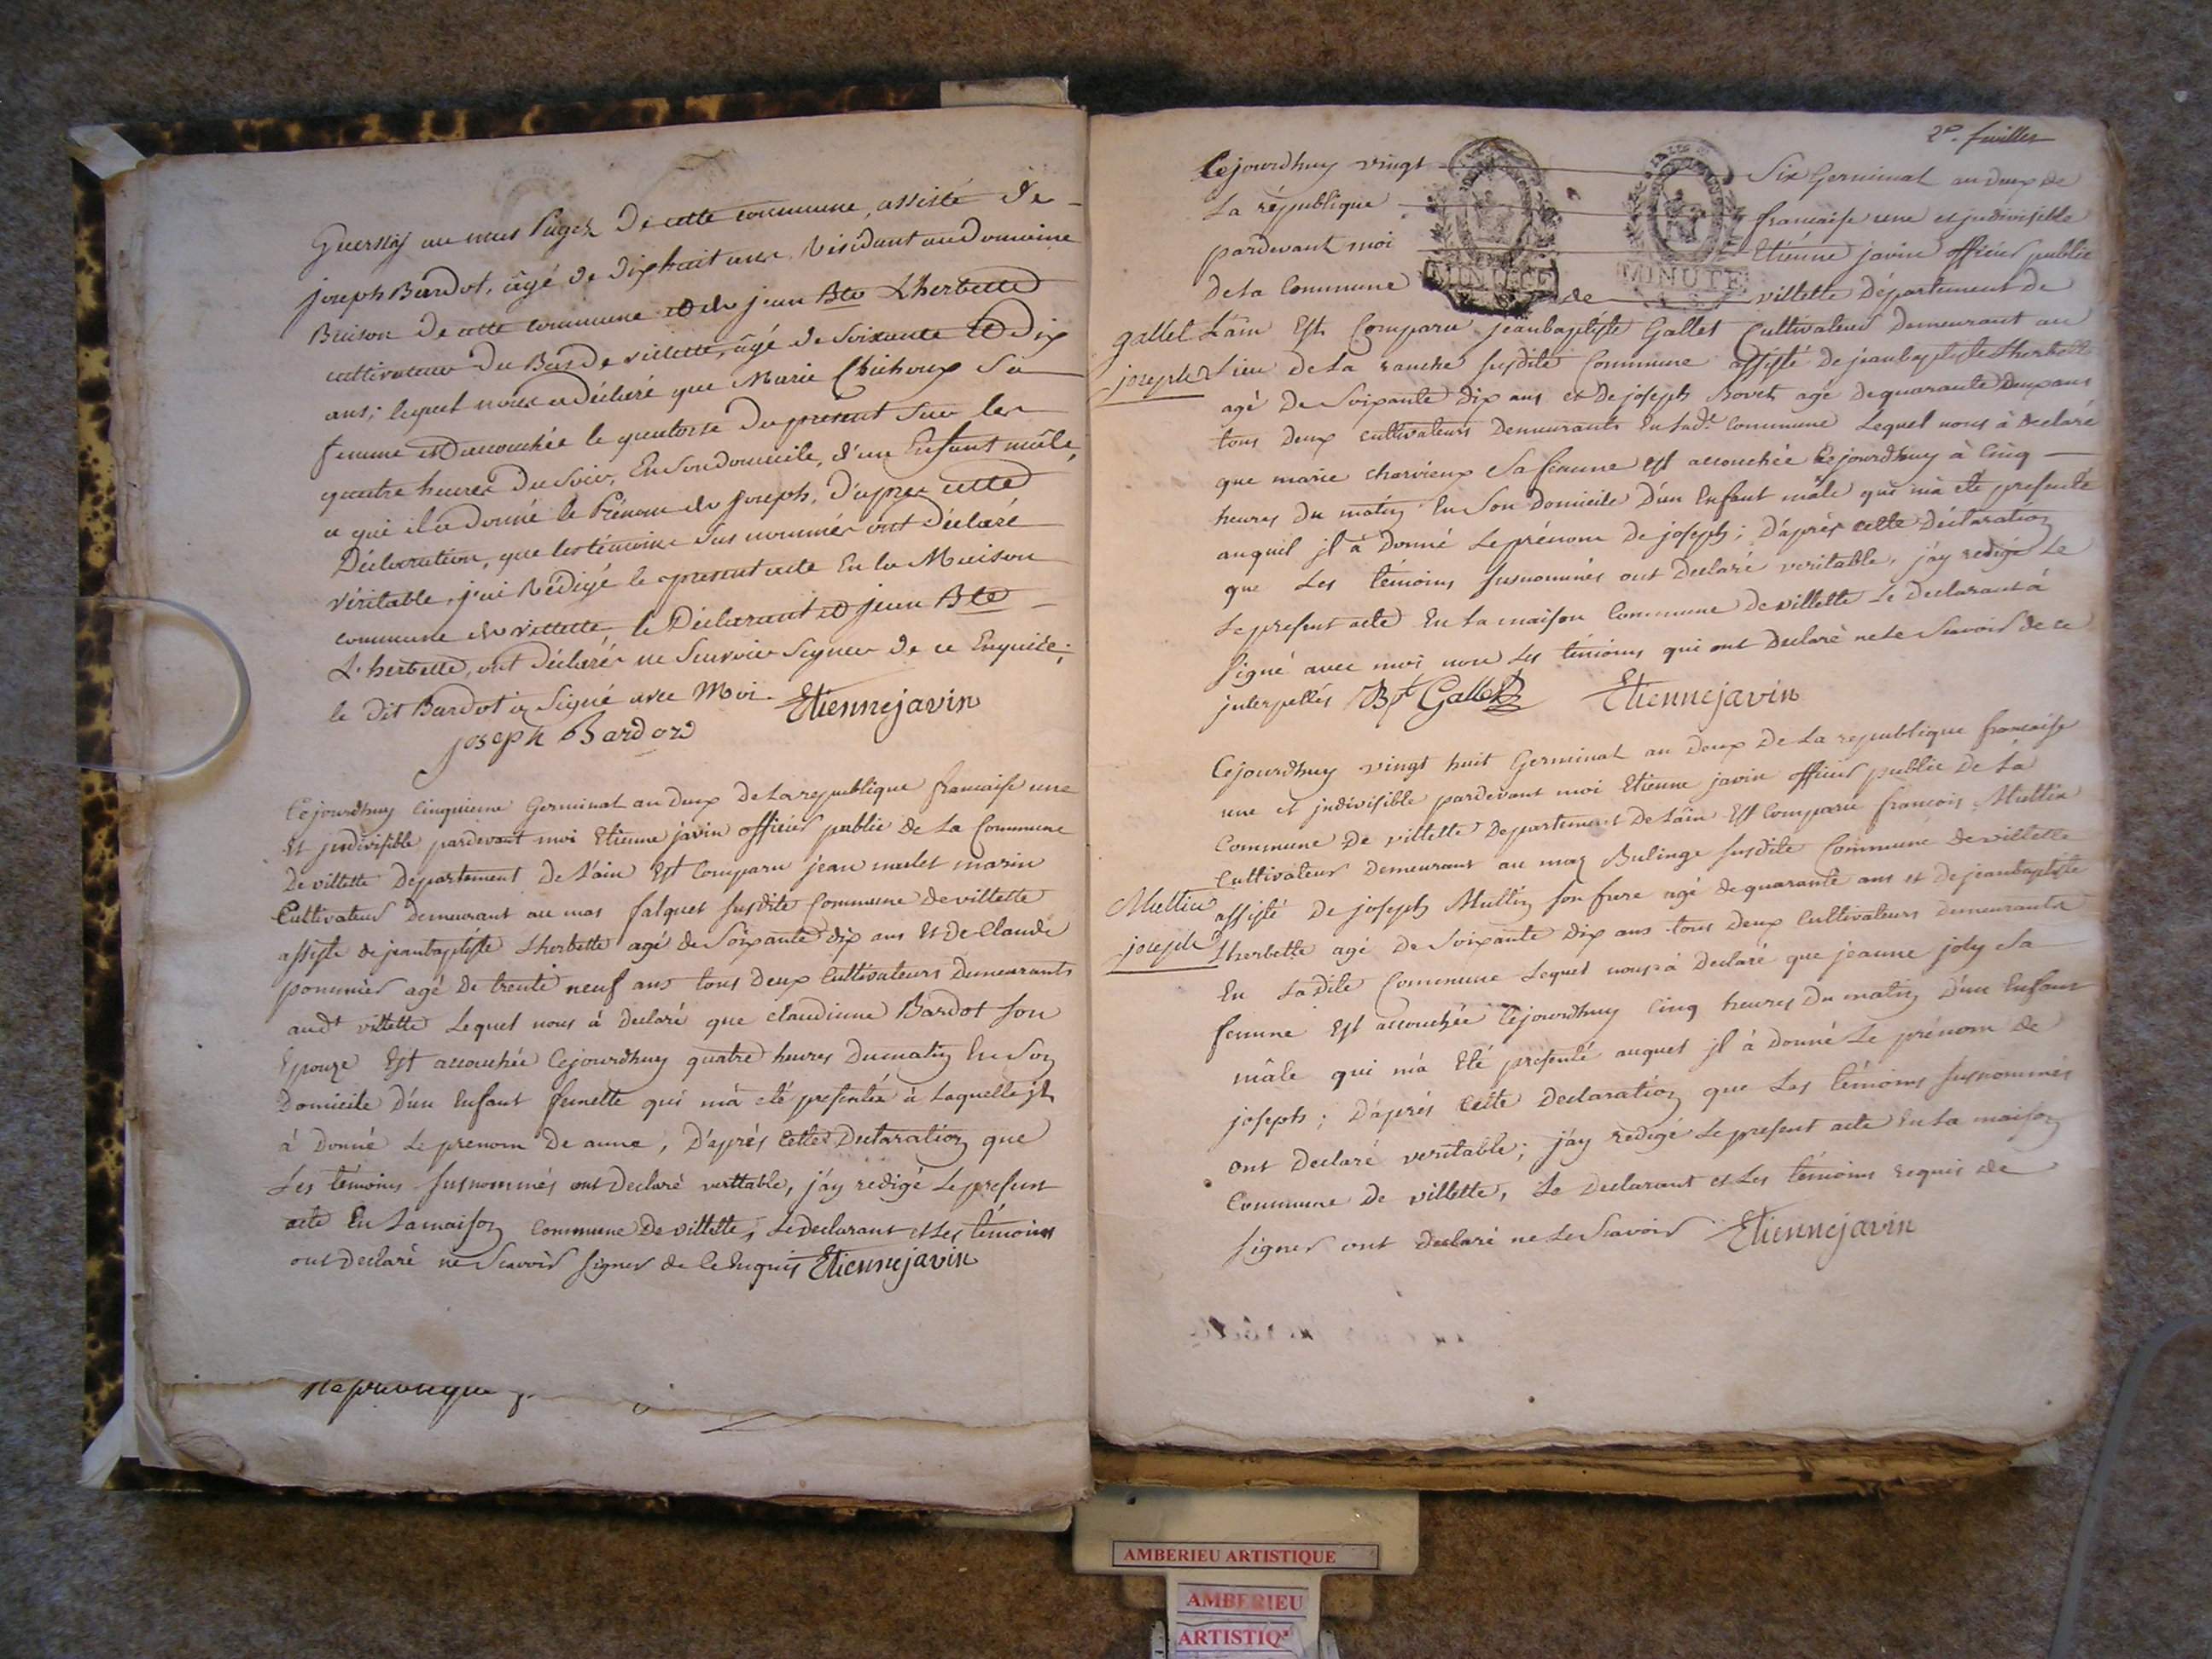 au mas Pugez De cette commune, assisté De
joseph Bardot, âgé de Dix huit ans Résidant au Domaine
Buison De cette commune et de jean Bte Lherbette
cultivateur Du Bas De villette, âgé de Soixante et Dix
ans; lequel nous a Déclaré que Marie Sa
femme est accouchée le quatorze Du present Sur les
quatre heures Du Soir, En Son Domicile, d'un Enfant mâle,
a qui il a Donné le Prénom de Joseph, D'après cette
Déclaration, que les témoins Sus nommés ont Déclaré
Véritable, j'ai Rédigé le present acte En la Maison
commune de villette le Déclarant et jean Bte
L'herbette, ont Déclarés ne Scavoir Signer De ce Enquis;
le Dit Bardot a Signé avec Moi. Etiennejavin
joseph Bardot
Cejourdhuy Cinquieme Germinal an Deux De la republique francaise une
Et jndivisible pardevant moi Etienne javin officier public de La Commune
De villette Departement De L'ain Est Comparu jean marin
Cultivateur Demeurant au mas falquet susdite Commune de villette
assisté de jeanbaptiste Lherbette agé de Soixante dix ans Et De Claude
pommier agé De trente neuf ans tous Deux Cultivateurs Demeurants
audt villette Lequel nous à Declaré que claudinne Bardot son
Epouze Est accouchée Cejourdhuy quatre heures Dumatin En Son
Domicile D'un Enfant femelle qui m'à eté presentée à Laquelle jl
à Donné Le prenom De anne, D'après Cette Declaration que
Les témoins susnommés ont Declaré veritable, j'ay redigé Le present
acte En La maison Commune De villette, Le Declarant et Les témoins
ont Declaré ne Scavoir signer de Ce Enquis Etiennejavin
2e. feuillet
Cejourdhuy vingt Six Germinal an Deux de
La république francaise une et jndivisible
pardevant moi Etienne javin officier public
De La Commune de villette Département de
MINUTE MINUTE
gallet L'ain Est Comparu jeanbaptiste Gallet Cultivateur Demeurant au
joseph Lieu De La ranche susdite Commune assisté De jeanbaptiste Lherbette
agé De Soixante Dix ans et De joseph Bovet agé De quarante Deux ans
tous Deux cultivateurs Demeurants En Lade Commune Lequel nous à Declaré
que marie charvieux Sa femme Est accouchée Cejourdhuy à Cinq
heures Du matin En Son Domicile D'un Enfant mâle qui m'a eté presenté
auquil jl à Donné Le prénom De joseph; D'après cette Déclaration
que Les témoins susnommés ont Declaré veritable, j'ay redigé Le
Le present acte En La maison Commune De villette Le Declarant à
signé avec moi non Les témoins qui ont Declaré ne Le Scavoir de ce
jnterpellés Bte Gallet Etiennejavin
Cejourdhuy vingt huit Germinal an Deux De La republique francaise
une et jndivisible pardevant moi Etienne javin officier public De La
Commune De villette Departement De L'ain Est Comparu francois Muttin
Cultivateur Demeurant au mas Bulinge susdite Commune De villette
Muttin assisté De joseph Muttin son frere agé De quarante ans et De jeanbaptiste
joseph Lherbette agé De Soixante Dix ans tous Deux Cultivateurs Demeurants
En Ladite Commune Lequel nous à Declaré que jeanne joly Sa
femme Est accouchée Cejourdhuy Cinq heures Du matin D'un Enfant
mâle qui m'à Eté presenté auquel jl à Donné Le prénom De
joseph; D'après Cette Declaration que Les témoins susnommés
ont Declaré veritable; j'ay redigé Le present acte En La maison
Commune De villette, Le Declarant et Les témoins requis de
signer ont Declaré ne Le Scavoir Etiennejavin
AMBERIEU ARTISTIQUE
AMBERIEU
ARTISTIQ